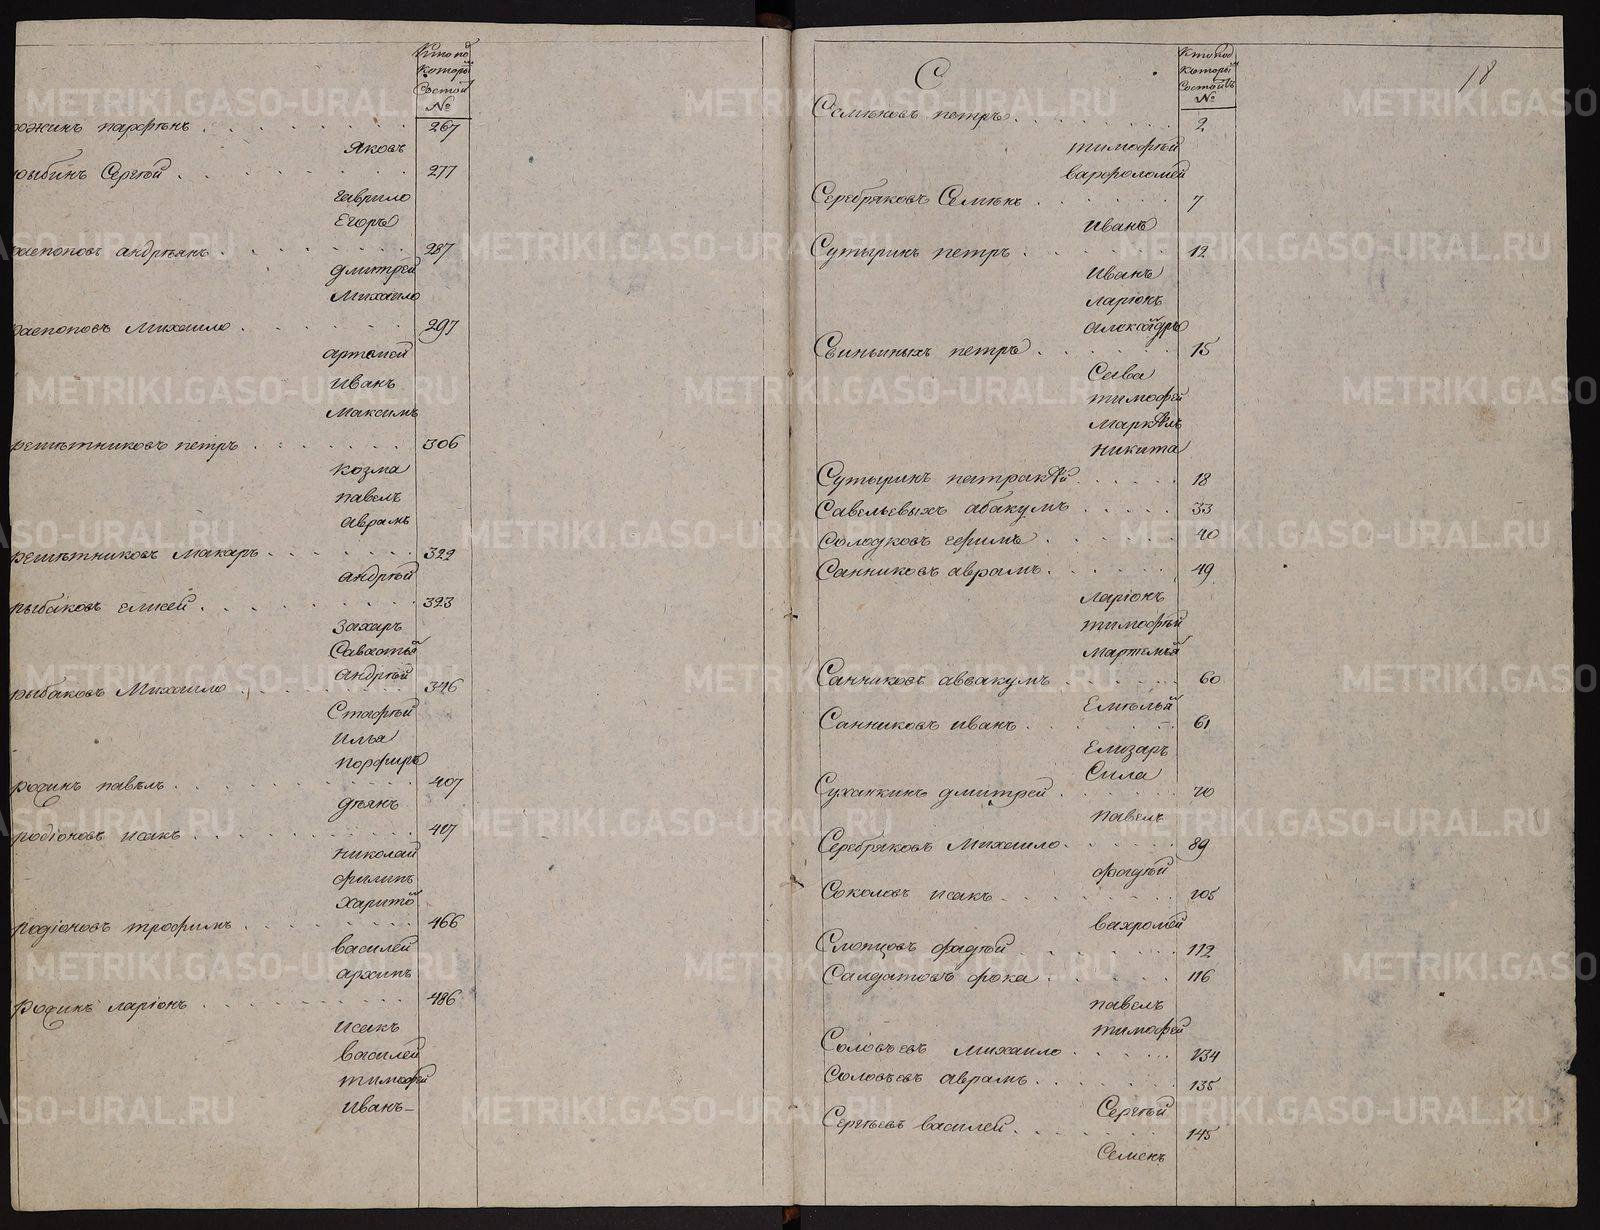 Кто по
которы
состои
№
рожинъ парфенъ 267
Яковъ
рыбинъ Сергѣй 277
гаврило
Егоръ
распоповъ андреянъ 287
дмитрей
Михаило
распоповъ Михаило 297
артемей
иванъ
максимъ
решетниковъ петръ 306
козма
павелъ
аврамъ
решетниковъ макаръ 322
андрѣй
рыбаковъ елисей 323
захаръ
Савватѣй
андрѣй
рыбаковъ Михаило 346
Стафѣй
илья
порфиръ
родинъ павелъ 407
деянъ
родіоновъ исакъ 417
николай
филипъ
харито
родіоновъ трофимъ 466
василей
архипъ
Родинъ ларіонъ 486
исакъ
василей
тимофей
иванъ
С
Кто под
которы
состоитъ
№
18
Семеновъ петръ 2
тимофѣй
варфоломей
Серебряковъ Семенъ 7
иванъ
Сутыринъ петръ 12
иванъ
ларіонъ
александръ
Свиньиныхъ петръ 15
Сава
тимофей
Маркелъ
никита
Сутыринъ патракѣй 18
Савельевыхъ абакумъ 33
Солодковъ ефимъ 40
Санниковъ аврамъ 49
ларіонъ
тимофѣй
мартемья
Санниковъ аввакумъ 60
Емельянъ
Санниковъ иванъ 61
Елизаръ
Сила
Суханкинъ дмитрей 70
павелъ
Серебряковъ Михаило 89
фадѣй
Соколовъ исакъ 105
вахромей
Слепцовъ фадѣй 112
Салдатовъ фока 116
павелъ
тимофей
Соловьевъ михаило 134
Соловьевъ аврамъ 135
Сергѣй
Сергѣевъ василей 145
Семенъ
METRIKI.GASO-URAL.RU